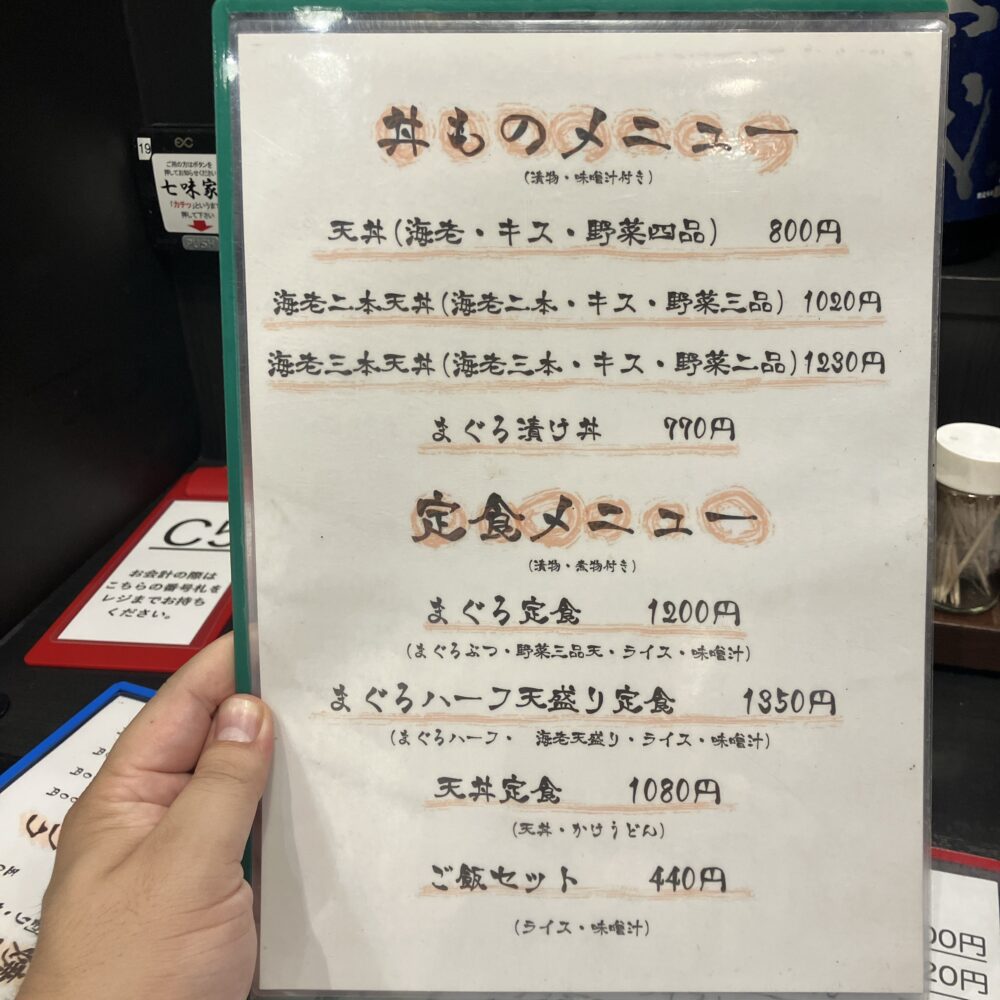 丼ものメニュー
(漬物・味噌汁付き)
天丼(海老・キス・野菜四品) 800円
海老二本天丼(海老二本・キス・野菜三品) 1020円
海老三本天丼(海老三本・キス・野菜二品) 1230円
まぐろ漬け丼 770円
定食メニュー
(漬物・煮物付き)
まぐろ定食 1200円
(まぐろぶつ・野菜三品天・ライス・味噌汁)
まぐろハーフ天盛り定食 1350円
(まぐろハーフ・ 海老天盛り・ライス・味噌汁)
天丼定食 1080円
(天丼・かけうどん)
ご飯セット 440円
(ライス・味噌汁)
19
ご用の方はボタンを
押してお知らせください
七味家
「カチッ」というまで
押して下さい
PUSH
C5
お会計の際は
こちらの番号札を
レジまでお持ち
ください。
00円
20円